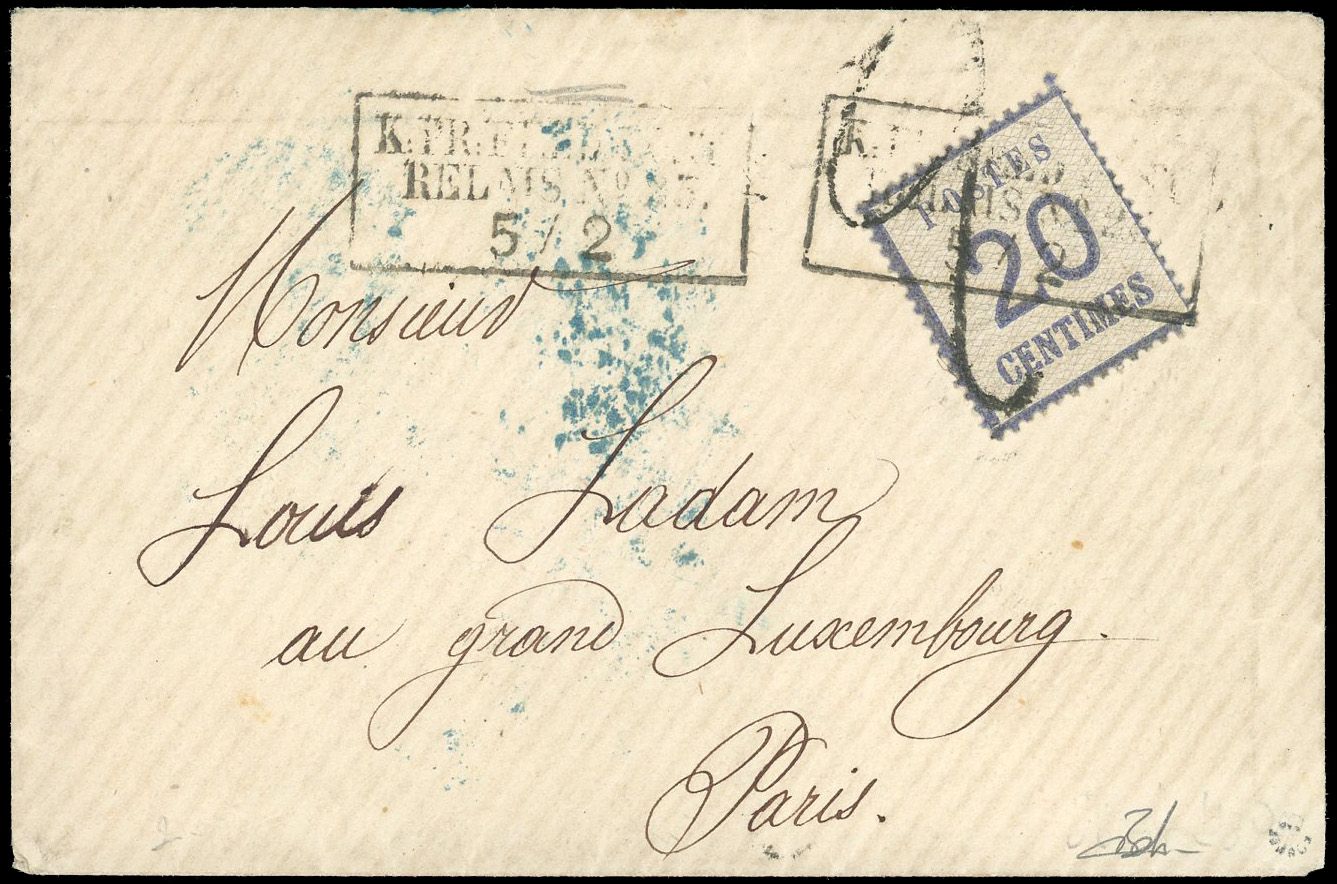 K.PR.FELDPOST
RELAIS No
5/2
POSTES
20
CENTIMES
Monsieur
Louis Ladam
au grand Luxembourg.
Paris.